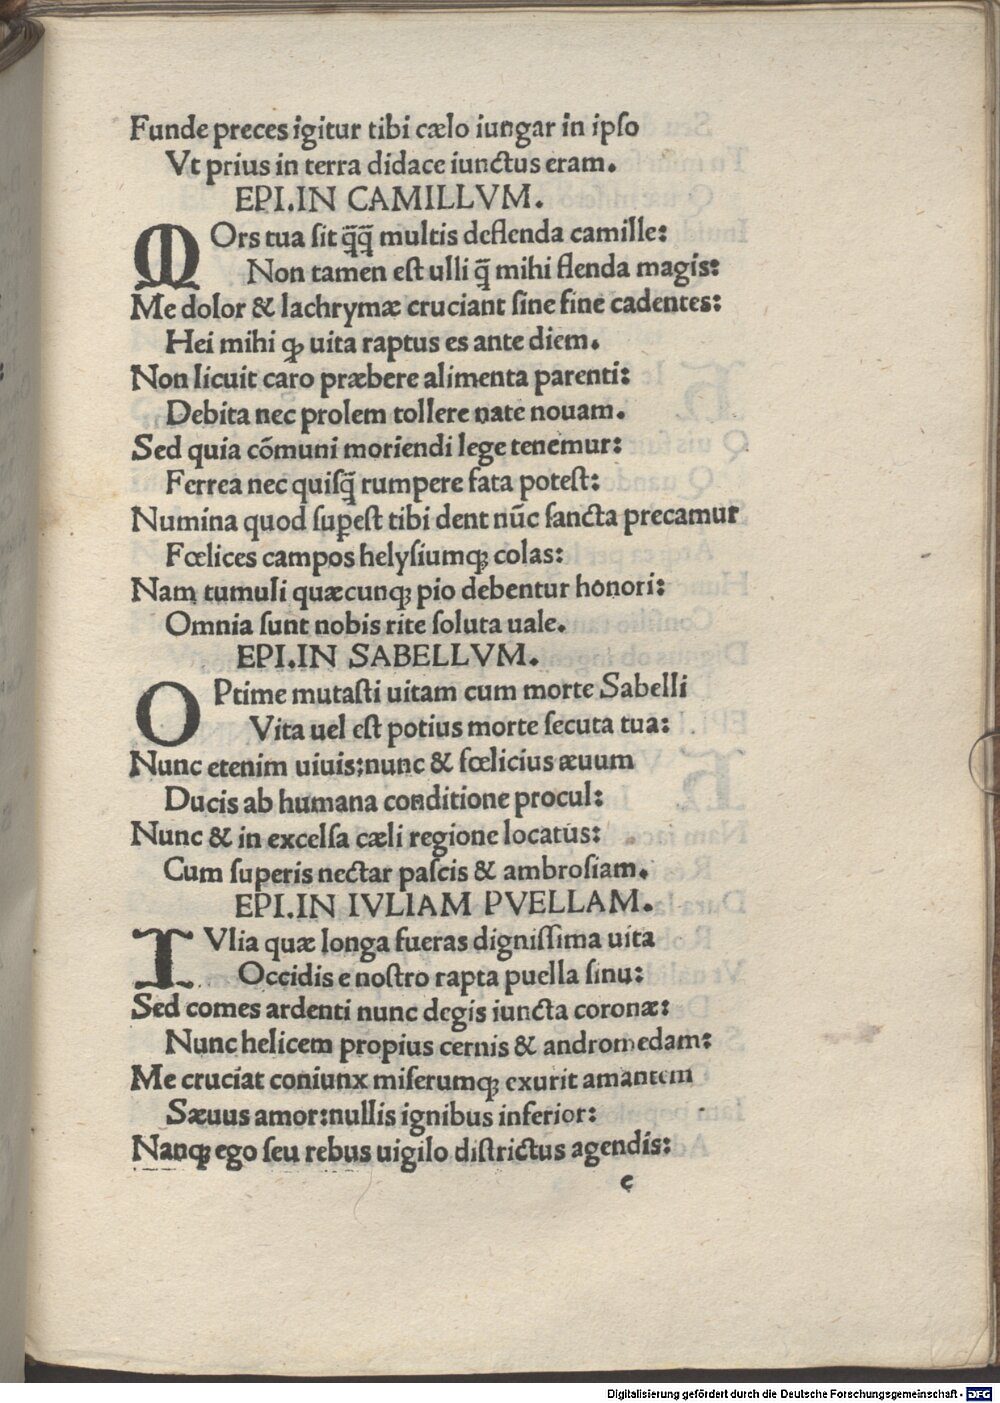 Funde preces igitur tibi cælo iungar in ipſo
Vt prius in terra didace iunctus eram.
EPI.IN CAMILLVM.
MOrs tua ſit q̄q̄ multis deflenda camille:
Non tamen eſt ulli q̄ mihi flenda magis:
Me dolor & lachrymæ cruciant ſine fine cadentes:
Hei mihi ꝙ uita raptus es ante diem.
Non licuit caro præbere alimenta parenti:
Debita nec prolem tollere nate nouam.
Sed quia cōmuni moriendi lege tenemur:
Ferrea nec quiſq̄ rumpere fata poteſt:
Numina quod ſuꝑeſt tibi dent nūc ſancta precamur
Fœlices campos helyſiumqꝫ colas:
Nam tumuli quæcunqꝫ pio debentur honori:
Omnia ſunt nobis rite ſoluta uale.
EPI.IN SABELLVM.
OPtime mutaſti uitam cum morte Sabelli
Vita uel eſt potius morte ſecuta tua:
Nunc etenim uiuis;nunc & fœlicius æuum
Ducis ab humana conditione procul:
Nunc & in excelſa cæli regione locatus:
Cum ſuperis nectar paſcis & ambroſiam.
EPI.IN IVLIAM PVELLAM.
IVlia quæ longa fueras digniſſima uita
Occidis e noſtro rapta puella ſinu:
Sed comes ardenti nunc degis iuncta coronæ:
Nunc helicem propius cernis & andromedam:
Me cruciat coniunx miſerumqꝫ exurit amantem
Sæuus amor:nullis ignibus inferior:
Nanqꝫ ego ſeu rebus uigilo diſtrictus agendis:
c
Digitalisierung gefördert durch die Deutsche Forschungsgemeinschaft - DFG